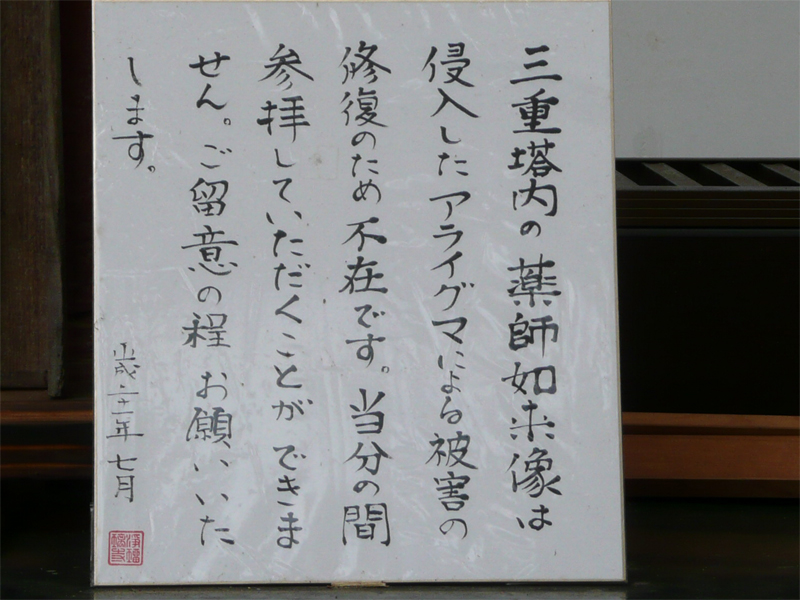 三重塔内の薬師如来像は
侵入したアライグマによる被害の
修復のため不在です。当分の間
参拝していただくことができま
せん。ご留意の程お願いいた
します。
平成二十一年七月